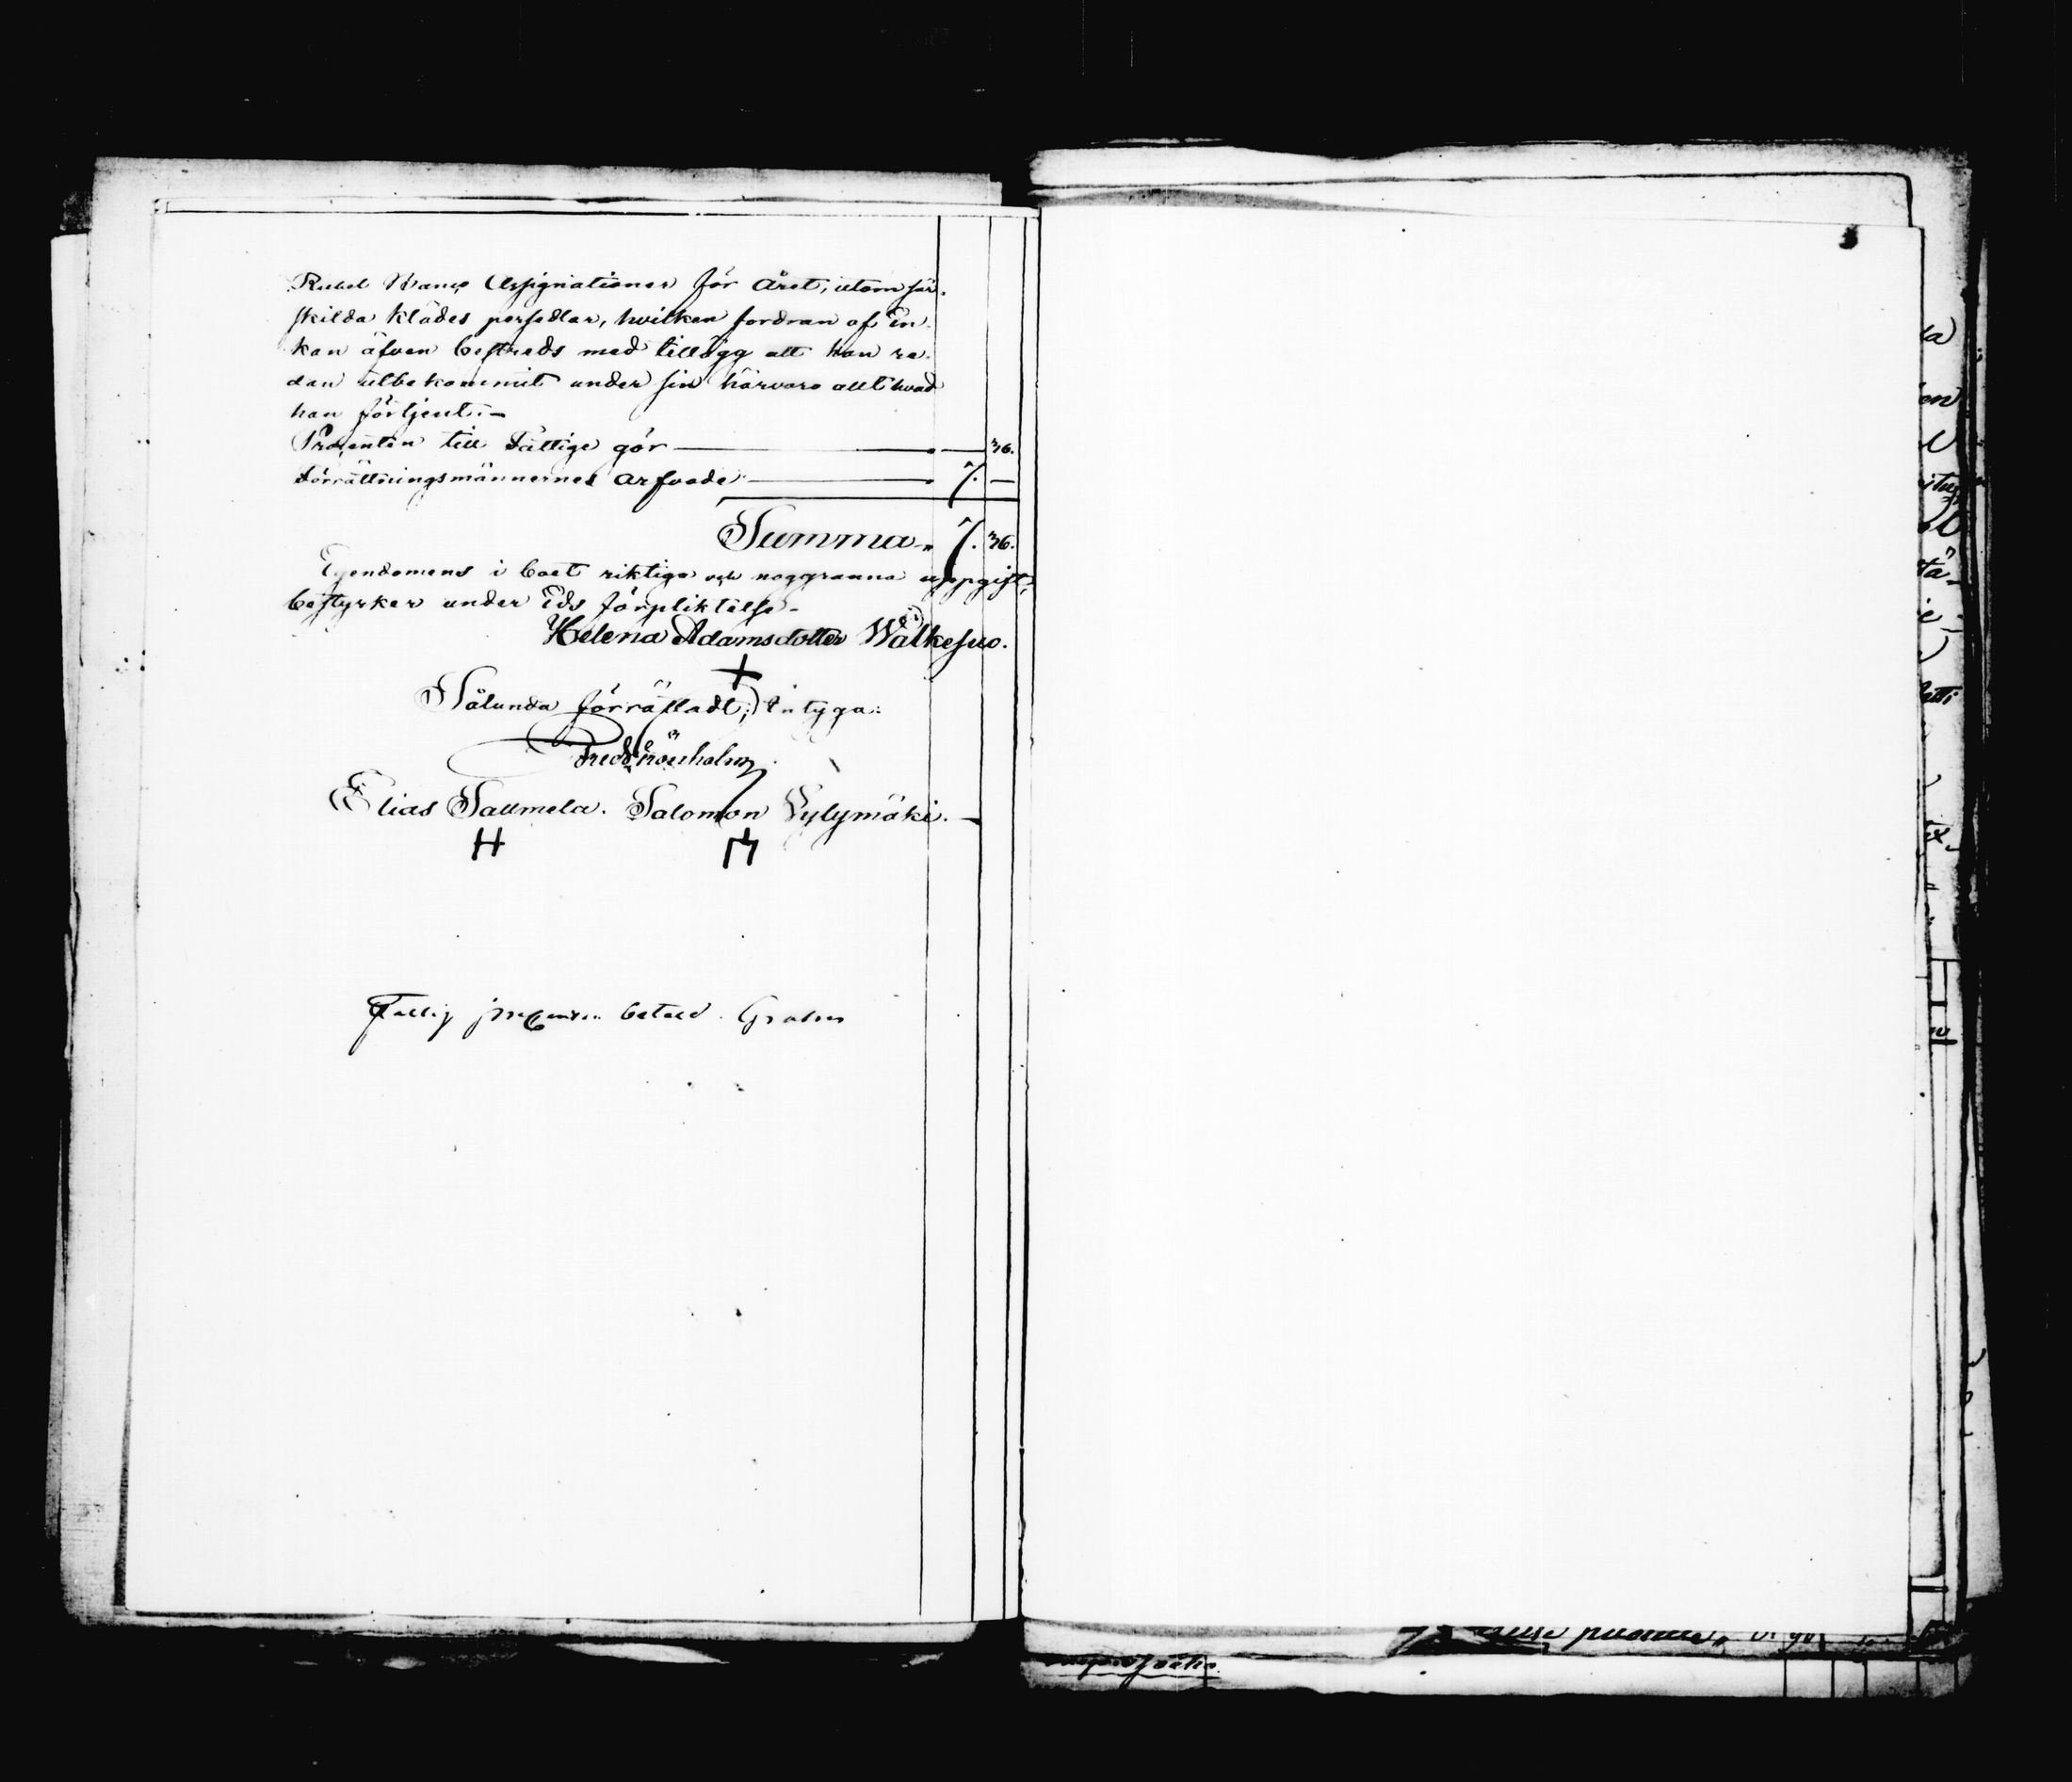 Rubel Banco Assignationer för året, utom sär-
skilda klädes persedlar, hvilken fordran af En-
kan äfven bestreds med tillägg att han re-
dan utbekommit under sin härvaro allt hvad
han förtjent.-
Procenten till Fattige gör 36.
Förrättningsmännernes arfvode 7. —
Summa 7. 36.
Egendomens i boet riktiga och noggranna uppgift,
bestyrker under Eds förpliktelse-
Helena Adamsdotter Walkesuo.
Sålunda förrättadt; Intyga:
Elias Saumela. Salomon Pylymäki.
Fattig procenten betald